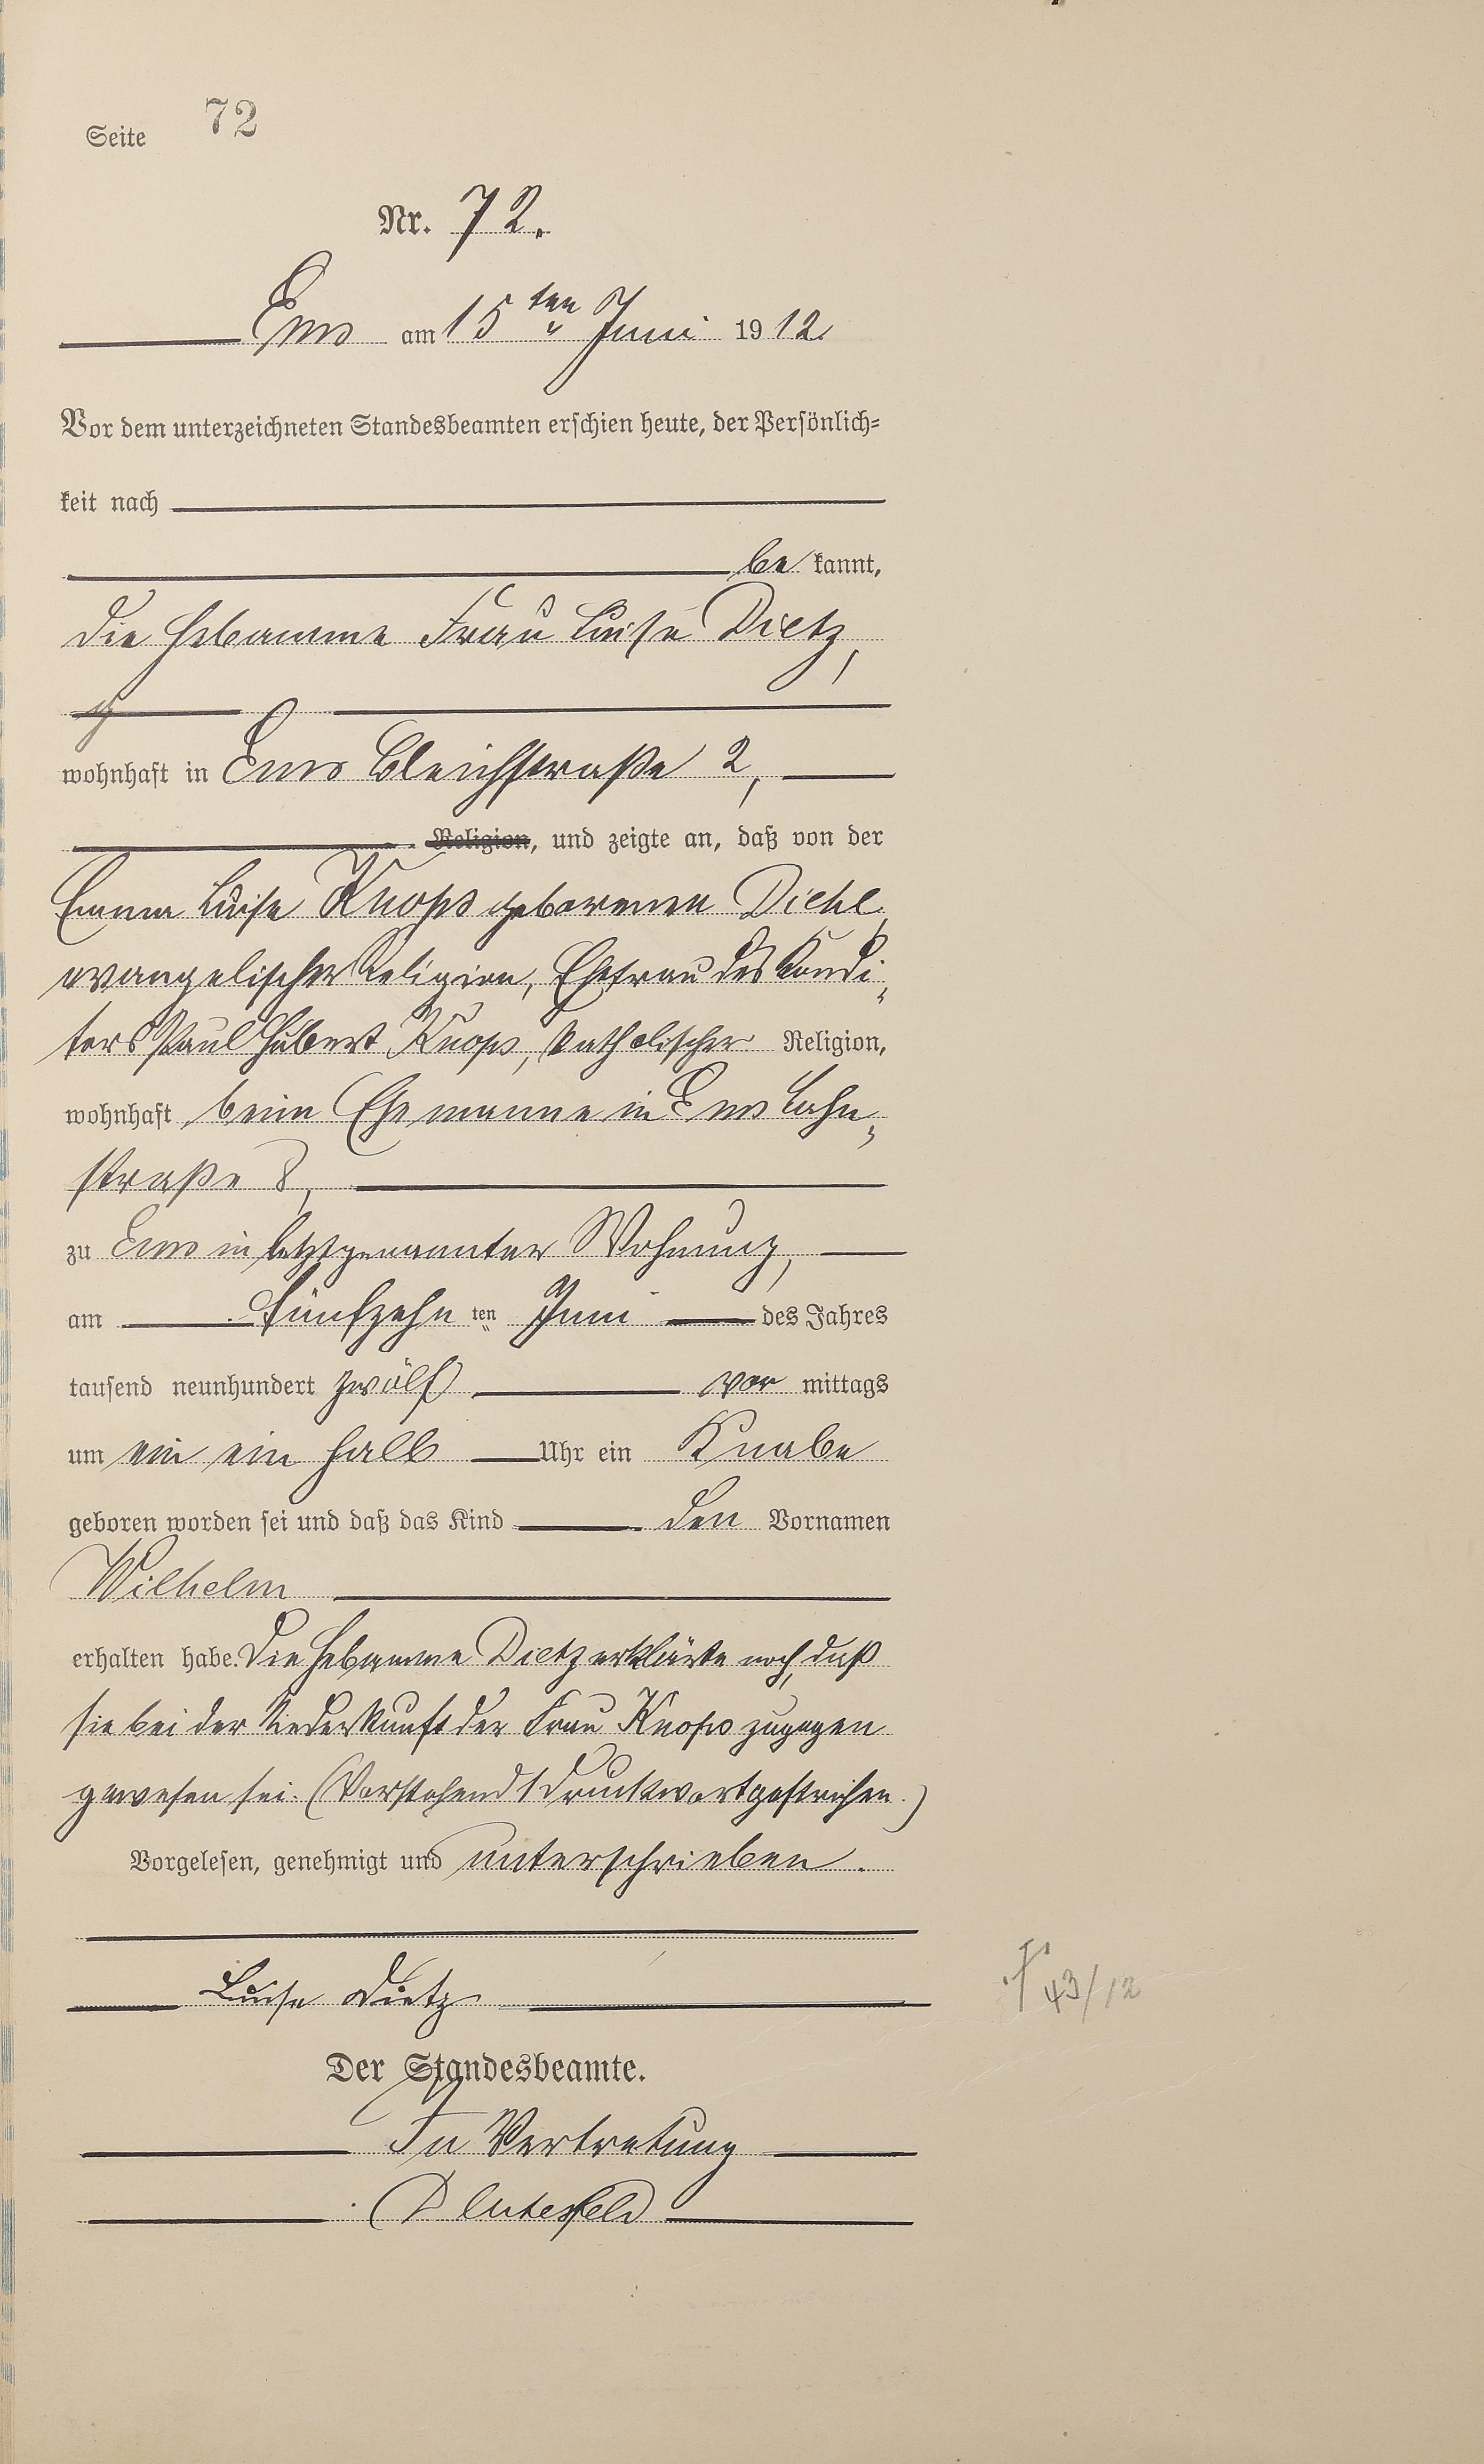 Seite 72
Nr. 72.
Ems am 15ten Juni 1912.
Vor dem unterzeichneten Standesbeamten erschien heute, der Persönlich-
keit nach
be kannt,
die Hebamme Frau Luise Dietz,
wohnhaft in Ems Bleichstraße 2,
Religion, und zeigte an, daß von der
Emma Luise Knops geborenen Diehl,
evangelischer Religion, Ehefrau des Kondi-
tors Paul Hubert Knops, katholischer Religion,
wohnhaft beim Ehemanne in Ems Lahn-
straße 8,
zu Ems in letztgenannter Wohnung,
am fünfzehn ten Juni des Jahres
tausend neunhundert zwölf vor mittags
um ein ein halb Uhr ein Knabe
geboren worden sei und daß das Kind den Vornamen
Wilhelm
erhalten habe. Die Hebamme Dietz erklärte noch, daß
sie bei der Niederkunft der Frau Knops zugegen
gewesen sei. (Vorstehend 1 Druckwort gestrichen.)
Vorgelesen, genehmigt und unterschrieben.
Luise Dietz
† 43/12
Der Standesbeamte.
In Vertretung